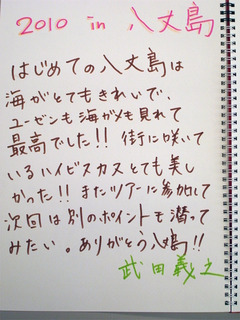 2010 in 八丈島
はじめての八丈島は
海がとてもきれいで、
ユーゼンも海ガメも見れて
最高でした!! 街に咲いて
いるハイビスカスとても美し
かった!! またツアーに参加して
次回は別のポイントも潜って
みたい。ありがとう八丈島!!
武田義之